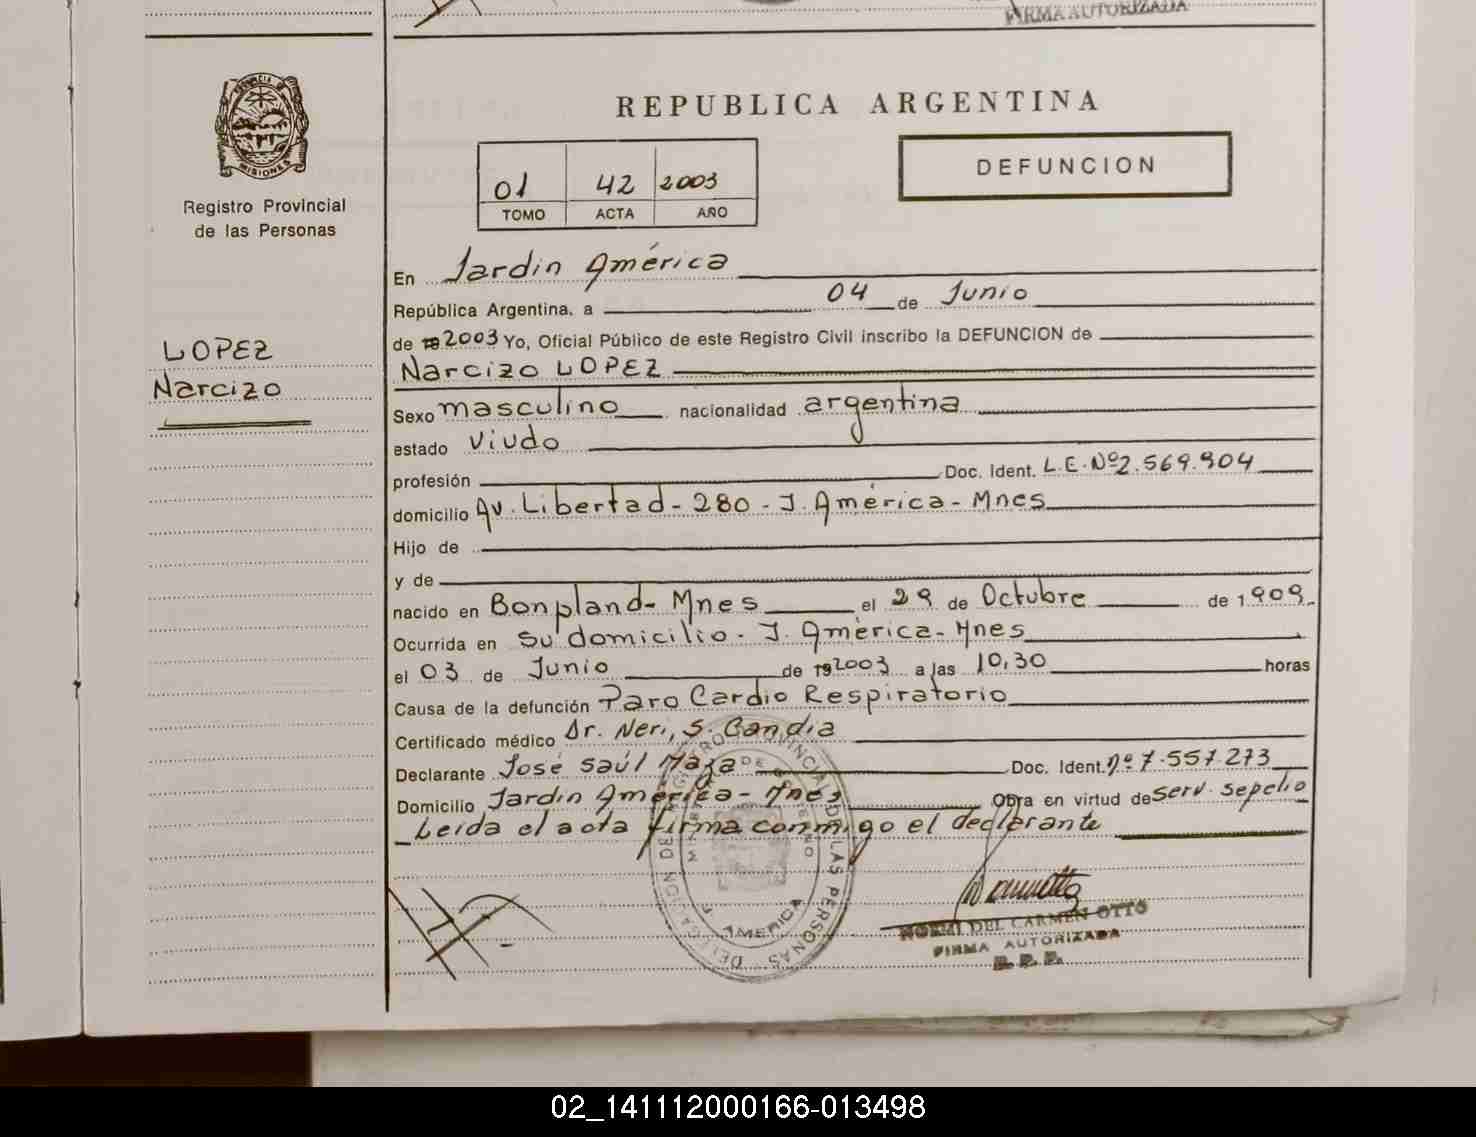 FIRMA AUTORIZADA
PROVINCIA DE
MISIONES
Registro Provincial
de las Personas
LOPEZ
Narcizo
REPUBLICA ARGENTINA
01 42 2003
TOMO ACTA AÑO
DEFUNCION
En Jardin América
República Argentina, a 04 de Junio
de 19 2003 Yo, Oficial Público de este Registro Civil inscribo la DEFUNCION de
Narcizo LOPEZ
Sexo masculino nacionalidad argentina
estado Viudo
profesión Doc. Ident. L.E. Nº 2.569.904
domicilio Av. Libertad - 280 - J. América - Mnes
Hijo de
y de
nacido en Bonpland - Mnes el 29 de Octubre de 1.909.
Ocurrida en su domicilio. J. América - Mnes
el 03 de Junio de 19 2003 a las 10,30 horas
Causa de la defunción Paro Cardio Respiratorio
Certificado médico Dr. Neri, S. Candia
Declarante José Saúl Maza Doc. Ident. nº 7.557.273
Domicilio Jardin América - Mnes Obra en virtud de serv. sepelio
Leida el acta firma conmigo el declarante
DELEGACION DEL REGISTRO PROVINCIAL DE LAS PERSONAS
MINISTERIO DE GOBIERNO
J. AMERICA
DEL CARMEN OTTO
FIRMA AUTORIZADA
R. P. P.
02_141112000166-013498